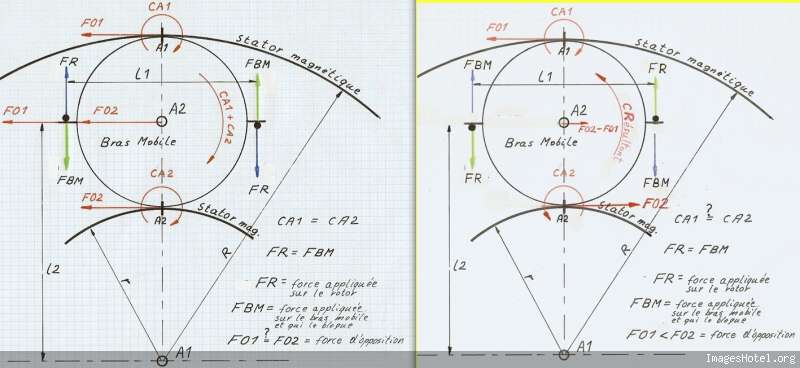 CA1
FO1
A1
Stator magnétique
FR
l1
FBM
FO1
FO2
A2
CA1 + CA2
Bras Mobile
FBM
FR
CA2
FO2
A2
Stator mag.
CA1 = CA2
l2
r
R
FR = FBM
FR = force appliquée
sur le rotor
FBM = force appliquée
sur le bras mobile
et qui le bloque
?
FO1 = FO2 = force d'opposition
A1
CA1
FO1
A1
Stator magnétique
FBM
l1
FR
A2
FO2-FO1
CRésultant
Bras Mobile
FR
FBM
CA2
FO2
A2
Stator mag.
?
CA1 = CA2
l2
r
R
FR = FBM
FR = force appliquée
sur le rotor
FBM = force appliquée
sur le bras mobile
et qui le bloque
FO1 < FO2 = force d'opposition
A1
ImagesHotel.org